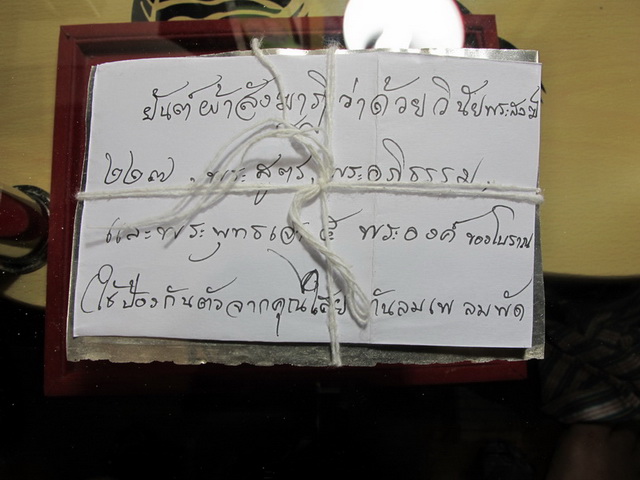 ยันต์ผ้าสังฆาฏิว่าด้วยวินัยพระสงฆ์
๒๒๗ พระสูตร พระอภิธรรม
และพระพุทธเจ้า ๕ พระองค์ ของโบราณ
ใช้ป้องกันตัวจากคุณไสย กันลมเพ ลมพัด